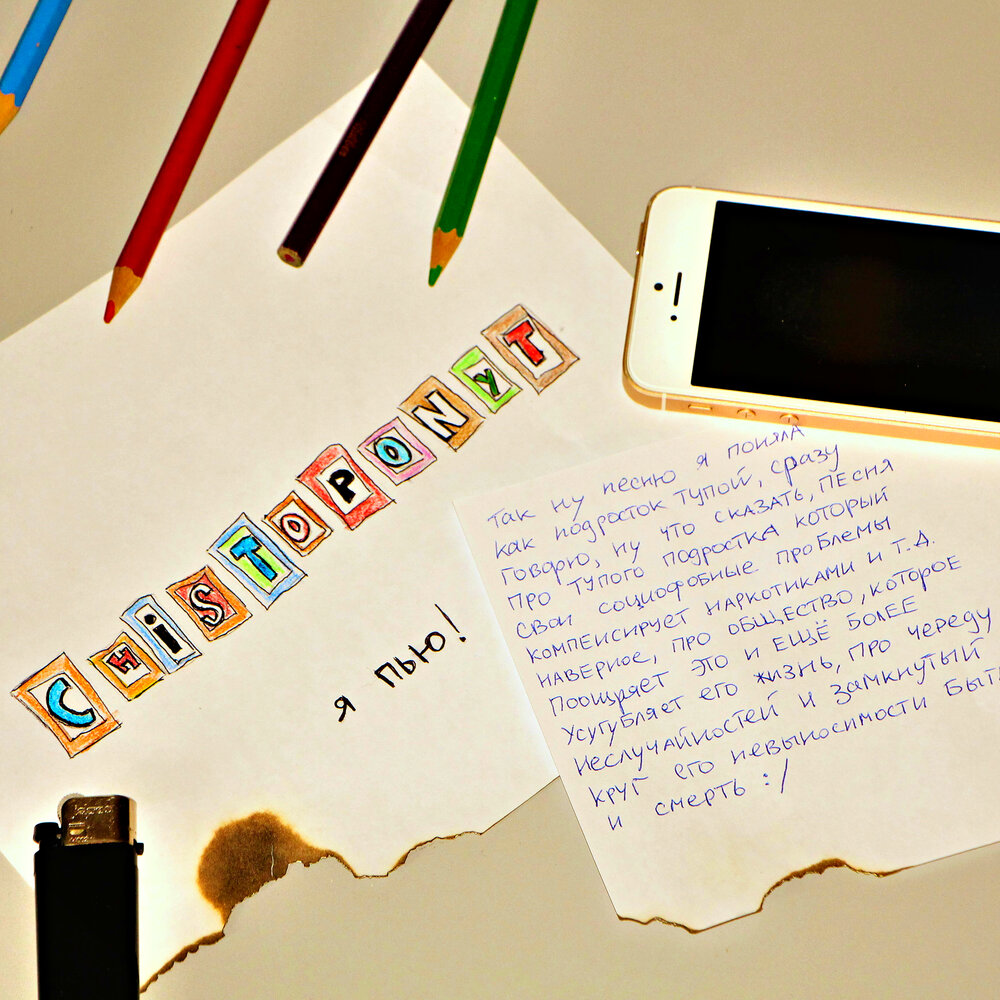 CHiSTOPONYT
я пью!
Так ну песню я поняла
как подросток тупой, сразу
говорю, ну что сказать, песня
про тупого подростка который
свои социофобные проблемы
компенсирует наркотиками и т.д.
наверное, про общество, которое
поощряет это и ещё более
усугубляет его жизнь, про
неслучайностей и замкнутый череду
круг его невыносимости быть
и смерть :/